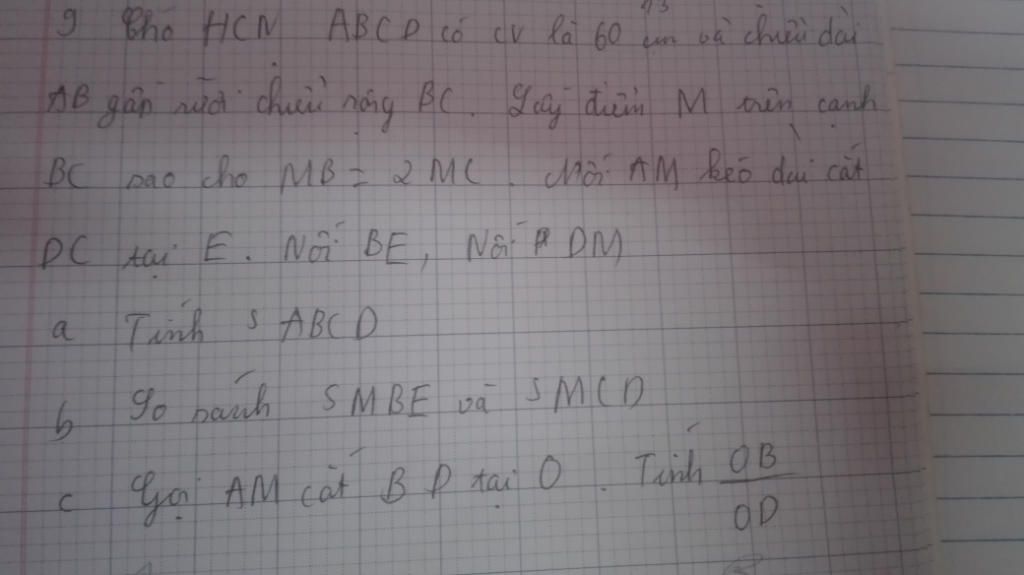 9 Cho HCN ABCD có cv là 60 cm và chiều dài
AB gấp rưỡi chiều rộng BC. Lấy điểm M trên cạnh
BC sao cho MB = 2 MC. Nối AM kéo dài cắt
DC tại E. Nối BE, Nối DM
a Tính S ABCD
b So sánh S MBE và S MCD
c Gọi AM cắt BD tại O. Tính OB
OD